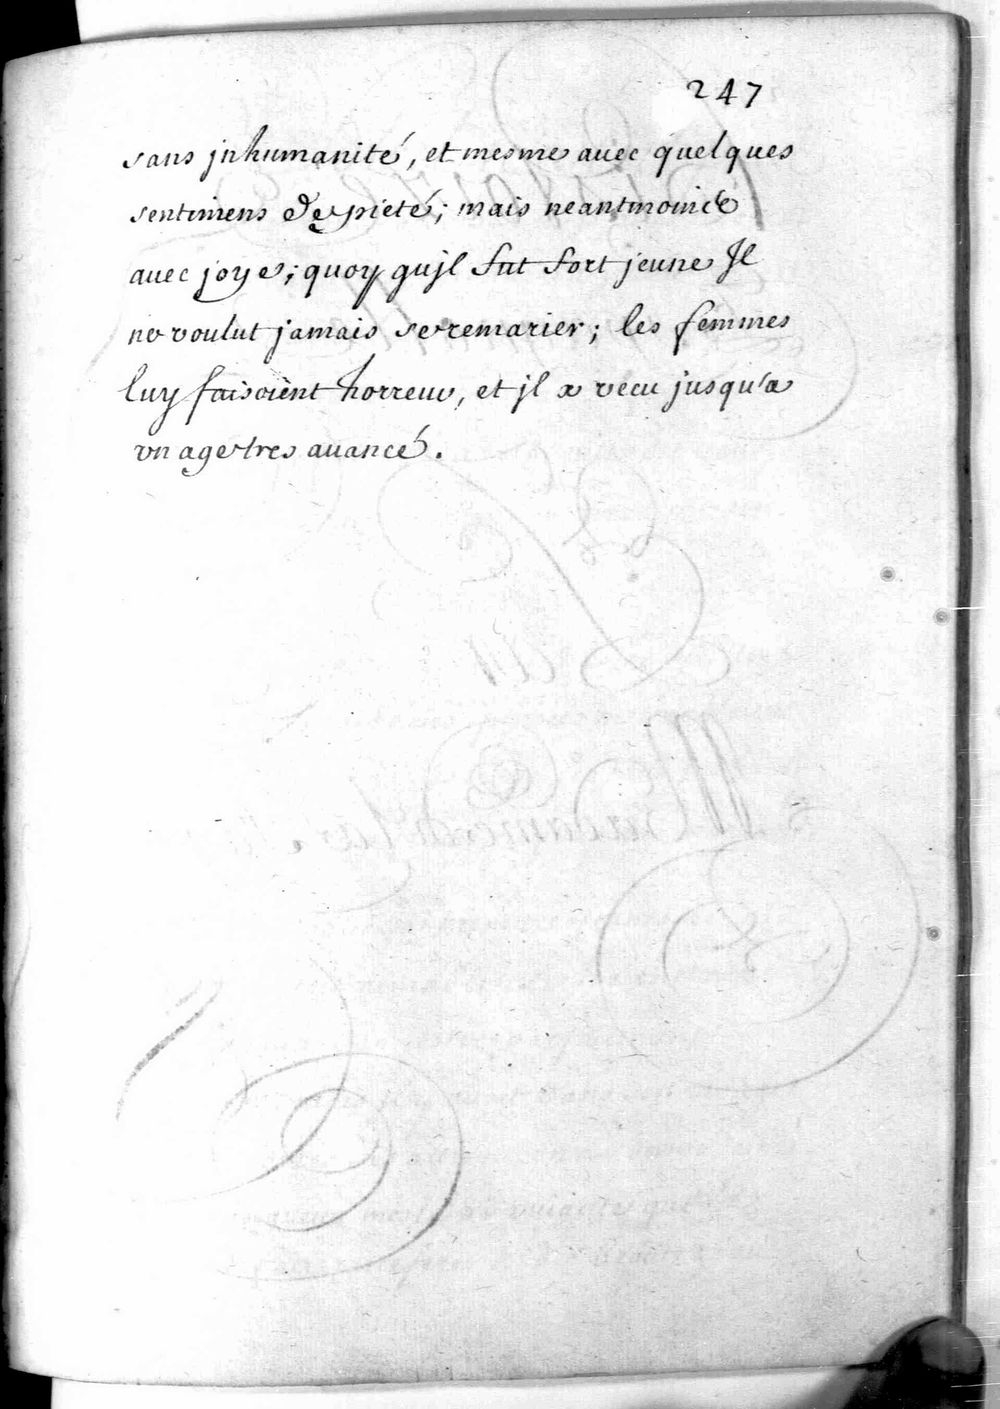 247
sans jnhumanité, et mesme auec quelques
sentimens de pieté; mais neantmoins
auec joye; quoy qujl fut fort jeune Jl
ne voulut jamais se remarier; les femmes
luy faisoient horreur, et jl a vecu jusqu'a
vn age tres auancé.